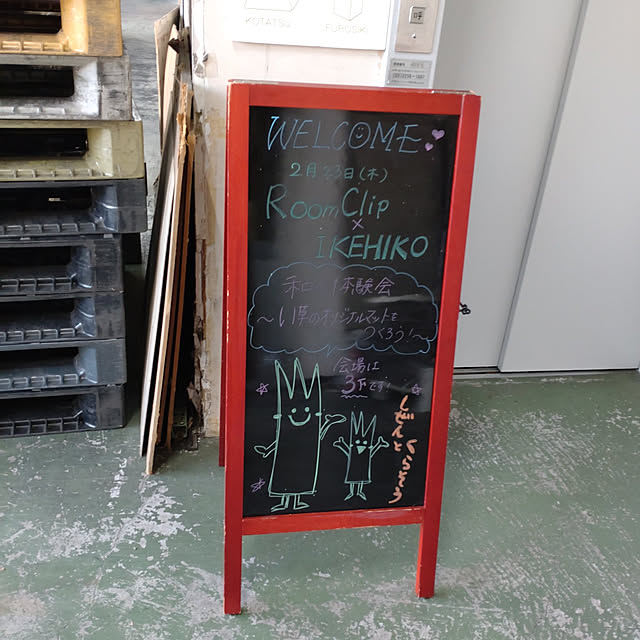 KOTATSU
FUROSHIKI
呼
WELCOME
2月23日(木)
RoomClip
×
IKEHIKO
体験会
～い草のオリジナルマットを
つくろう!～
会場は
3下です!
しぜんと
くらそう